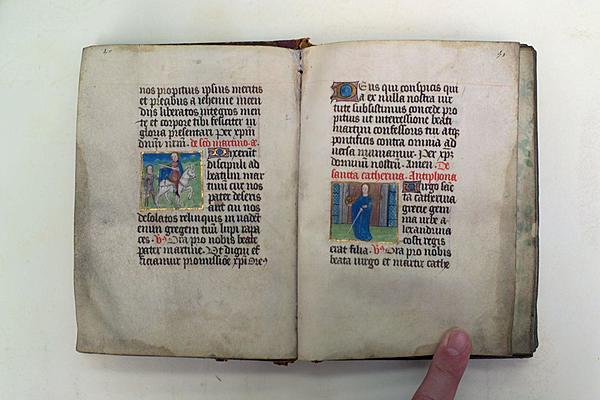 nos propitius ipsius meritis
et precibus a iehenne incen
diis liberatos integros men
te et corpore tibi feliciter in
gloria presentari per xpm
dnm nrm. de sco martino. a.
Dixerūt
discipuli ad
beatum mar
tinū cur nos
pater deseris
aut cui nos
desolatos relinquis inuadēt
enim gregem tuū lupi rapa
ces. v. Ora pro nobis beate
pater martine. Vt digni ef
ficiamur promissiōe xpi. Ore
51
Deus qui conspicis qui
a ex nulla nostra uir
tute subsistimus concede pro
pitius ut intercessione beati
martini confessoris tui atq;
pontificis contra omnia ad
uersa muniamur. Per xp̄
dominum nostrū. Amen. De
sancta catherina. Antiphona
Virgo sāc
ta catherina
grecie gem
ma urbe a
lexandrina
costi regis
erat filia. v. Ora pro nobis
beata uirgo et martir cathe